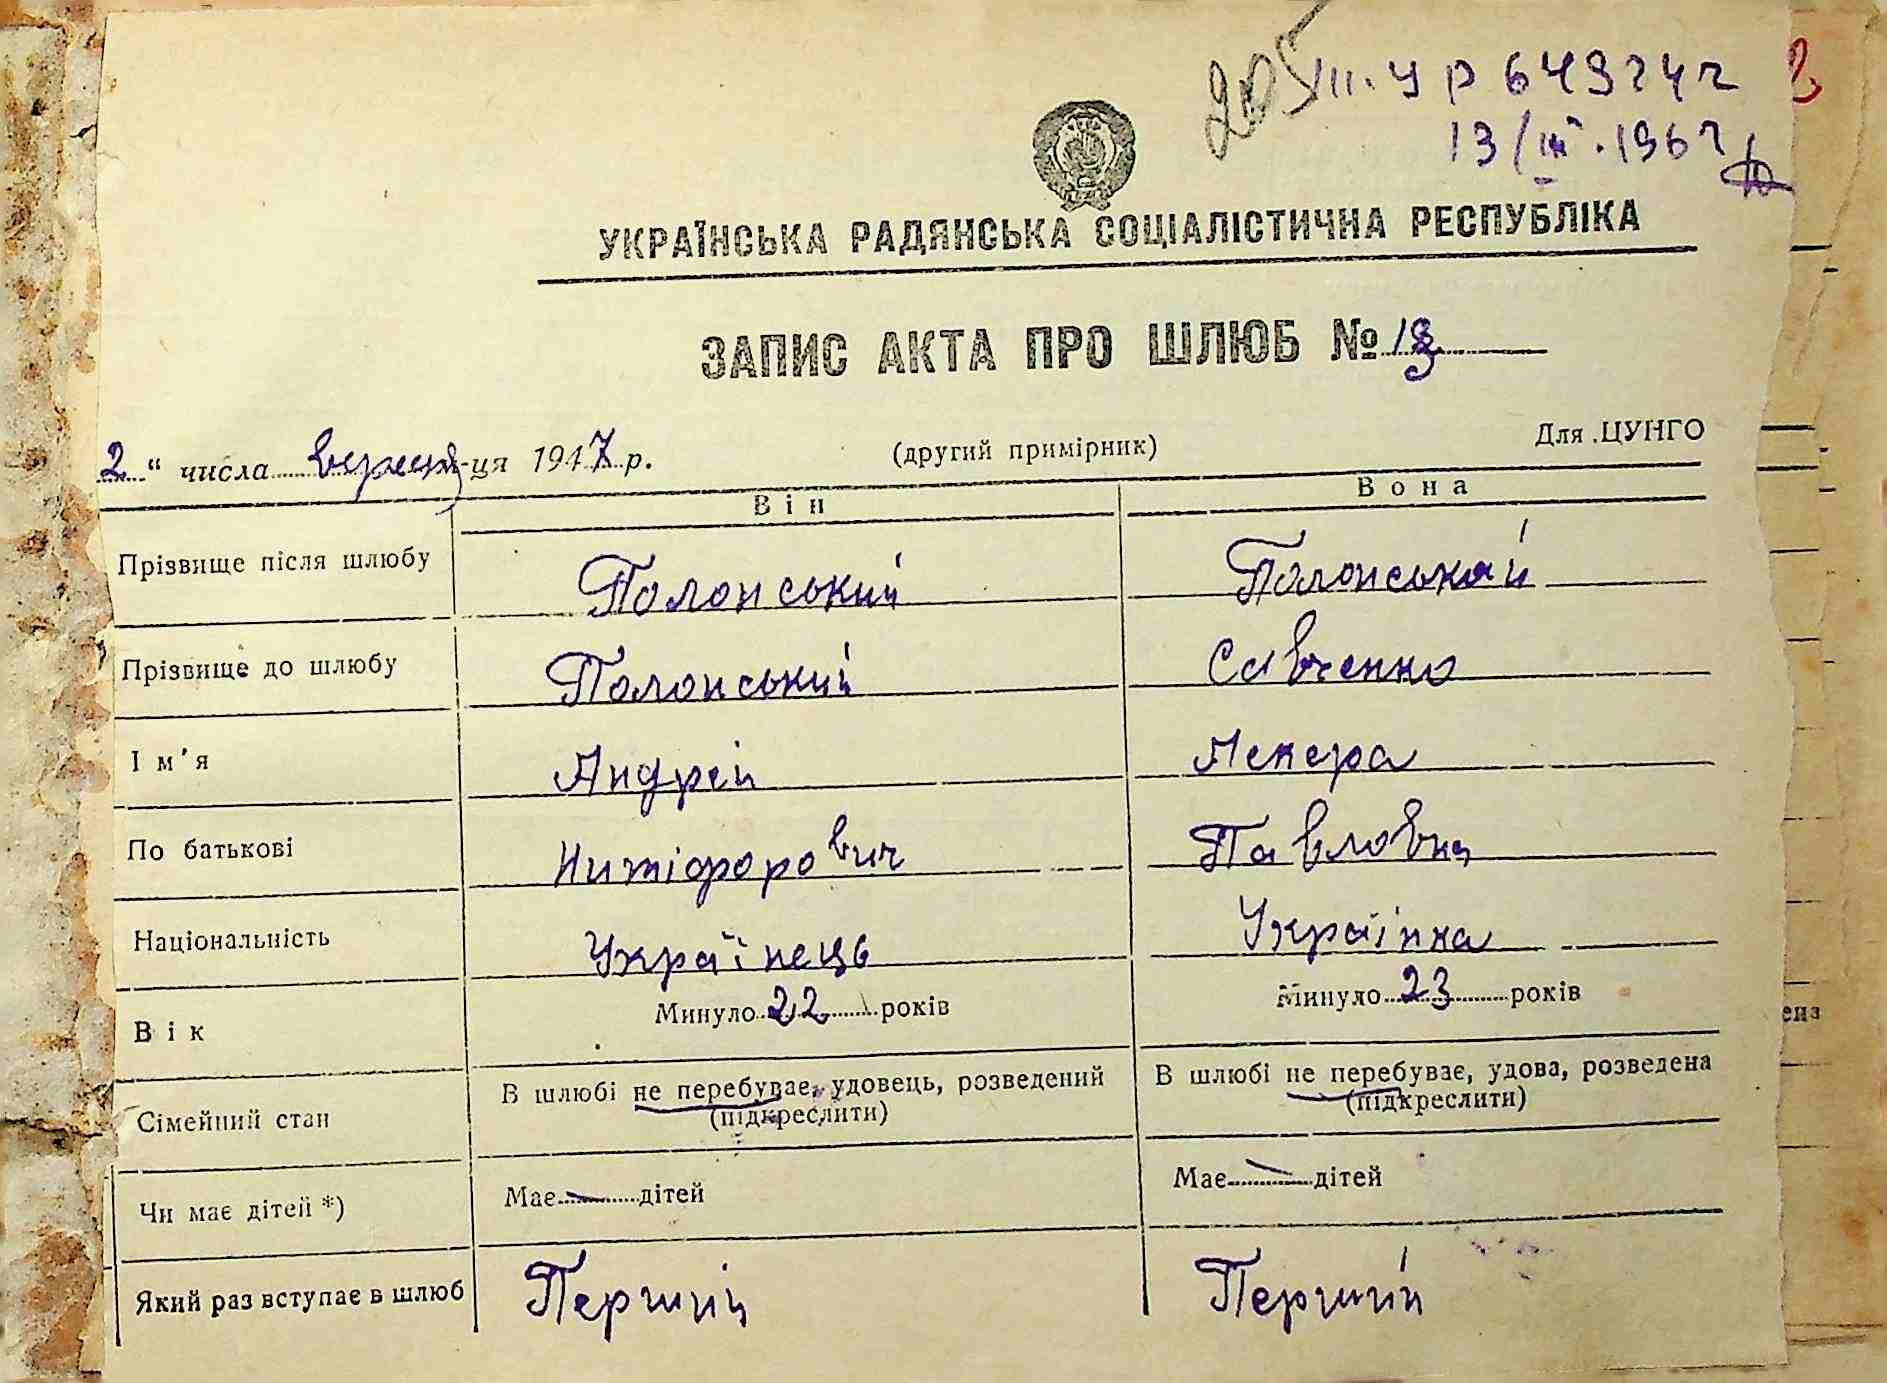 205
III. УР 649242
13/III. 1962
УКРАЇНСЬКА РАДЯНСЬКА СОЦІАЛІСТИЧНА РЕСПУБЛІКА
ЗАПИС АКТА ПРО ШЛЮБ № 13
2 " числа вересня-ця 1947 р. (другий примірник) Для ЦУНГО
Він Вона
Прізвище після шлюбу Полонський Полонськай
Прізвище до шлюбу Полонський Савченко
Ім'я Андрей
По батькові Никіфорович Павловна
Національність Українець Українка
Вік Минуло 22 років Минуло 23 років
Сімейний стан В шлюбі не перебуває, удовець, розведений В шлюбі не перебуває, удова, розведена
(підкреслити) (підкреслити)
Чи має дітей *) Має — дітей Має — дітей
Який раз вступає в шлюб Перший Перший